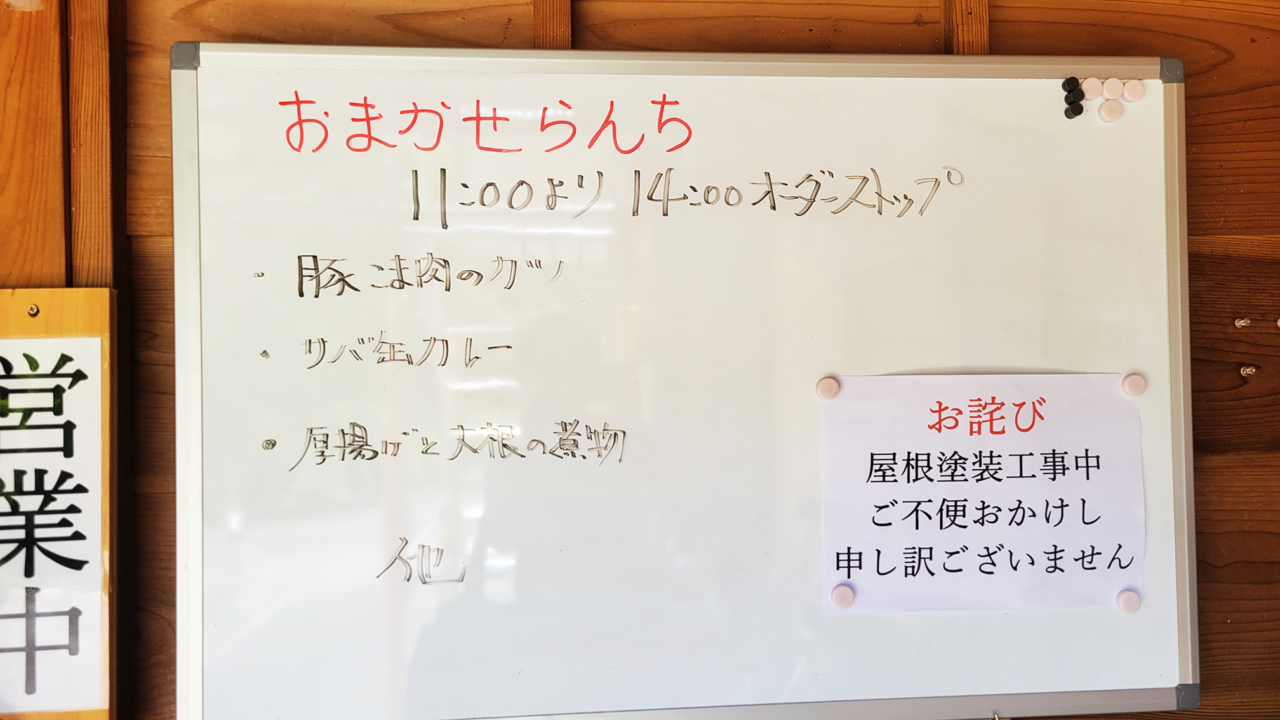 おまかせらんち
11:00より 14:00オーダーストップ
・豚こま肉のカツ
・サバ缶カレー
・厚揚げと大根の煮物
他
お詫び
屋根塗装工事中
ご不便おかけし
申し訳ございません
営業中